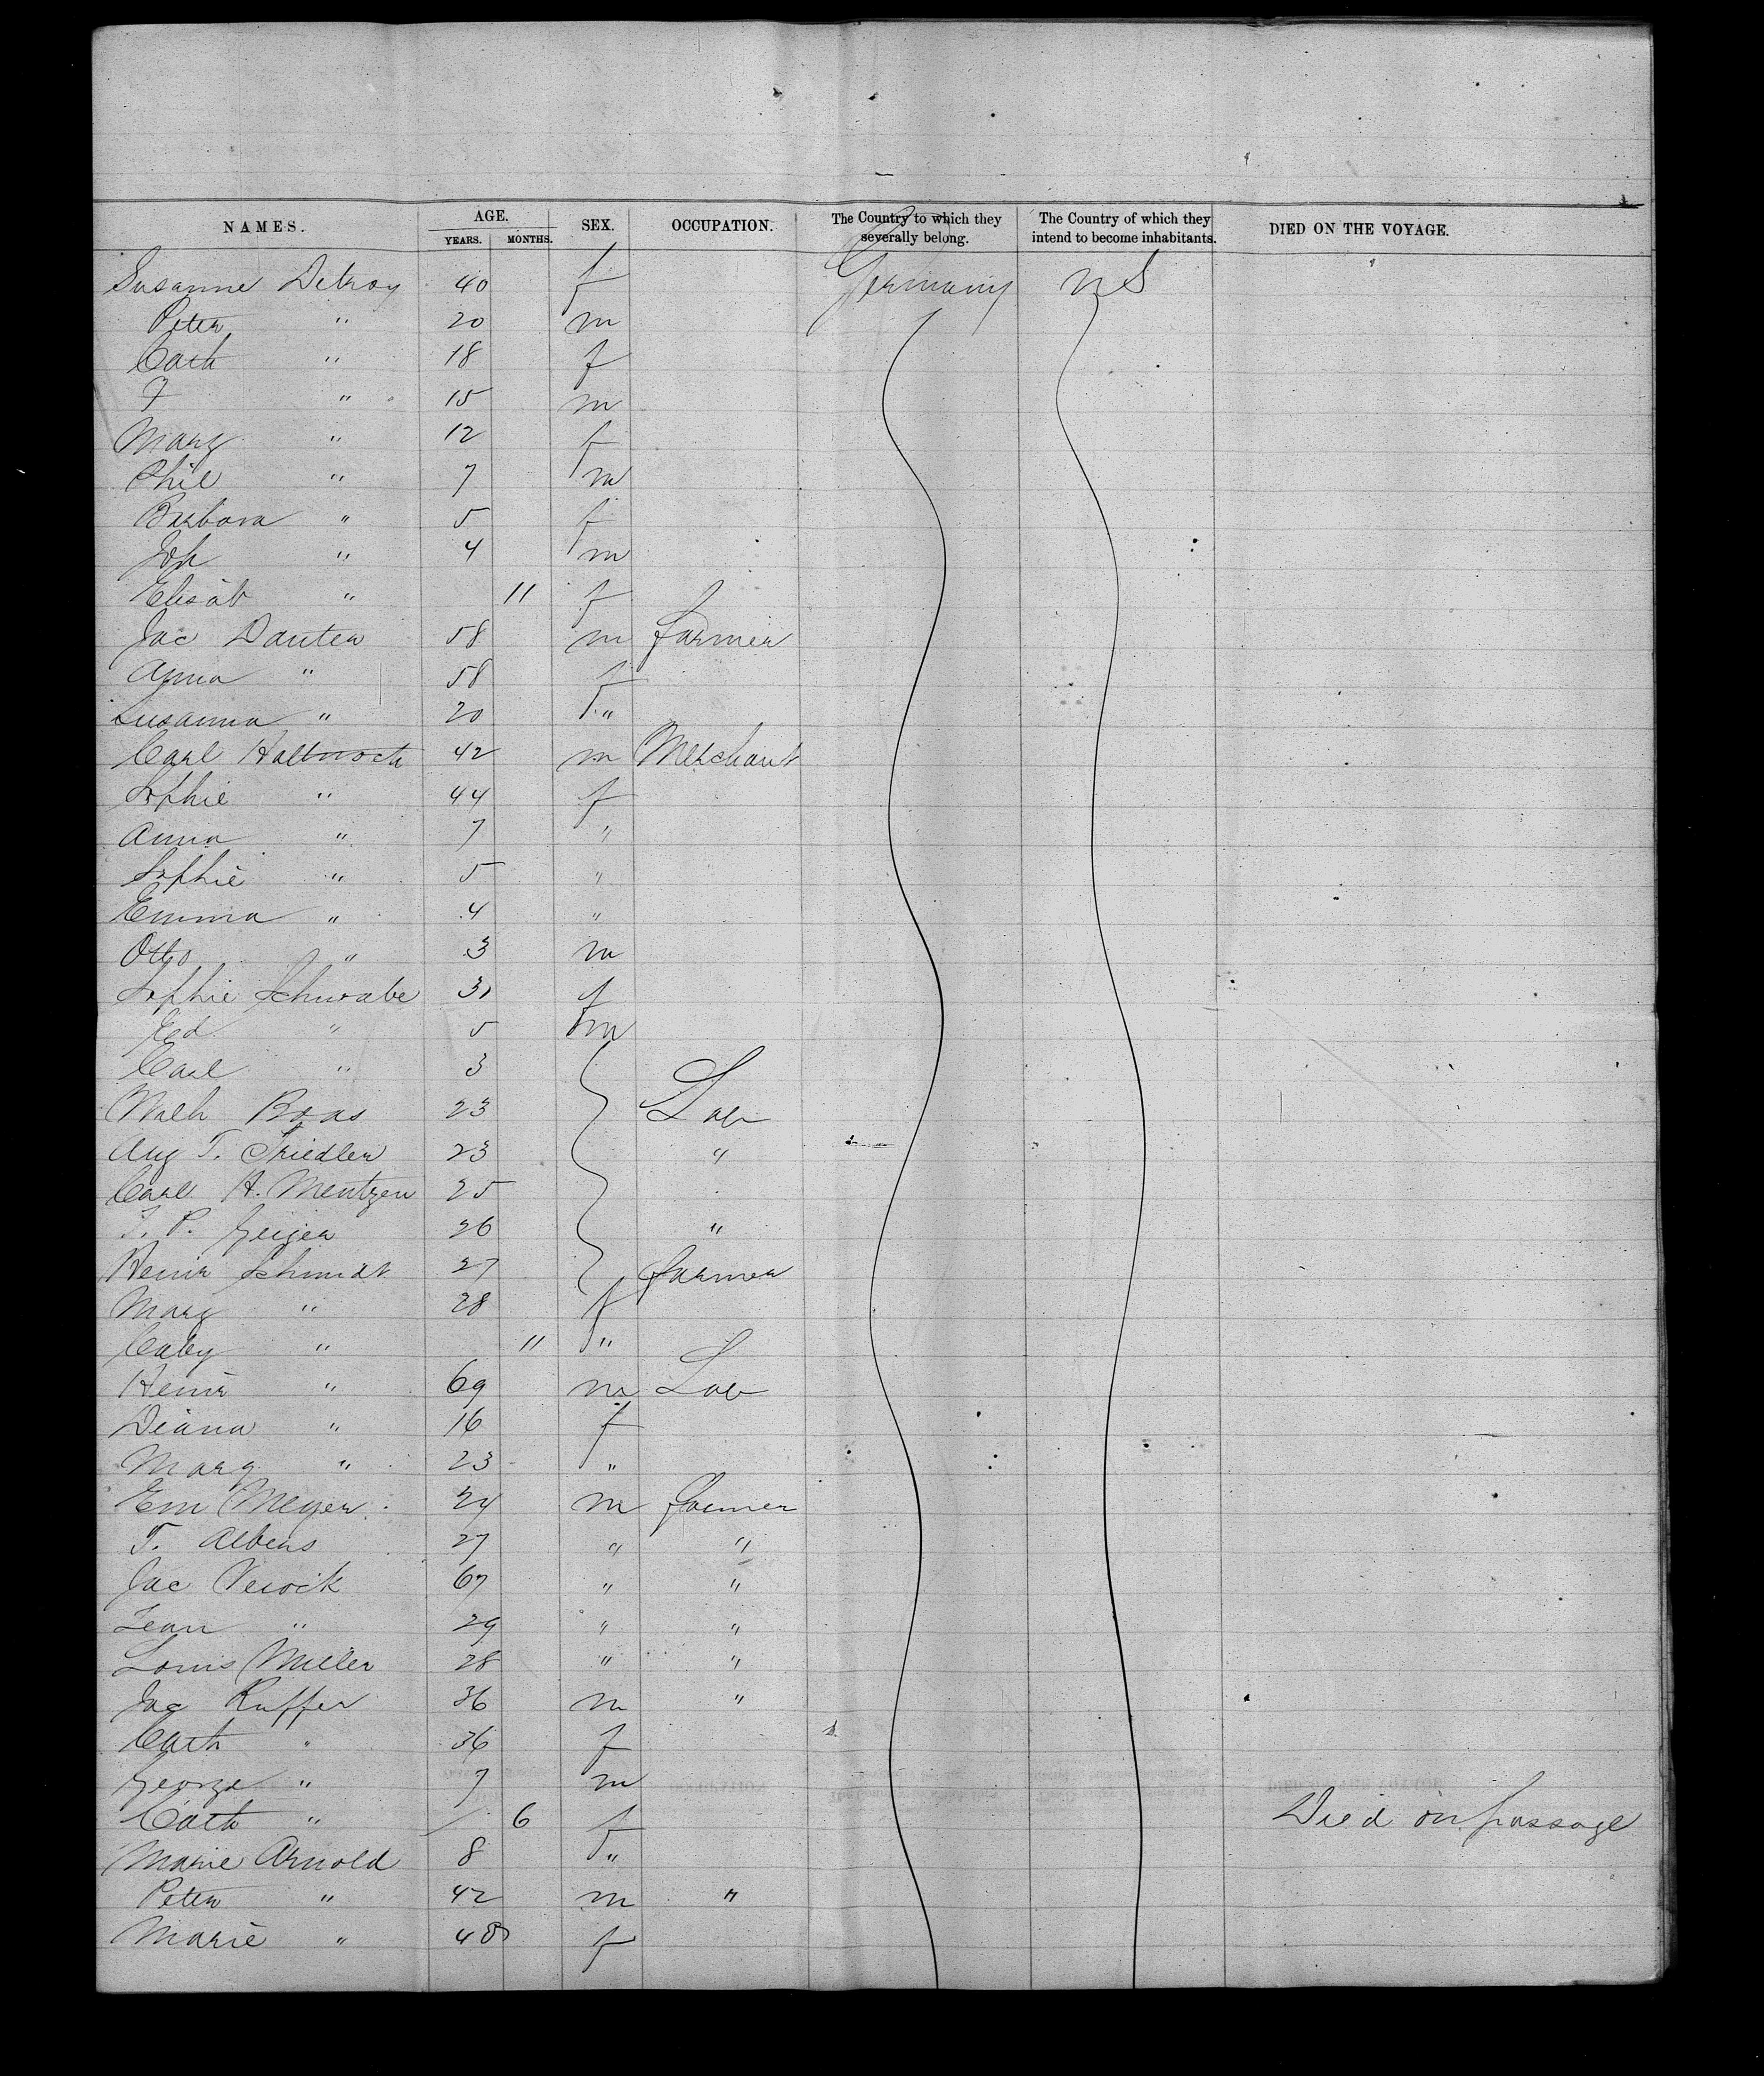 NAMES. AGE. SEX. OCCUPATION. The Country to which they severally belong. The Country of which they intend to become inhabitants. DIED ON THE VOYAGE.
YEARS. MONTHS.
Susanne Detroy 40 f Germany US
Peter " 20 m
Cath " 18 f
F " 15 m
Marg " 12 f
Phil " 7 m
Barbara " 5 f
Joh " 4 m
Elisab " 11 f
Jac Dauter 58 m farmer
Anna " 58 f
Susanna " 20 "
Carl 42 m Merchant
Sophie " 44 f
Anna " 7 "
Sophie " 5 "
Emma " 4 "
Otto " 3 m
Sophie Schwabe 31 f
Ed " 5 m
Carl " 3
Wilh Boas 23 Lab
Aug T. Friedler 23 "
Carl H. Mentzen 25
T. P. Geiger 26 "
Heinr Schmidt 27 farmer
Marg " 28 f
" 11 "
Heinr " 69 m Lab
Diana " 16 f
Marg " 23 "
Em Meyer 24 m farmer
T. Albens 27 " "
Jac 67 " "
Jean " 29 " "
Louis Miller 28 " "
Jac Ruffer 36 m "
Cath " 36 f
George " 7 m
Cath " / 6 f Died on passage
Marie Arnold 8 "
Peter " 42 m "
Marie " 48 f